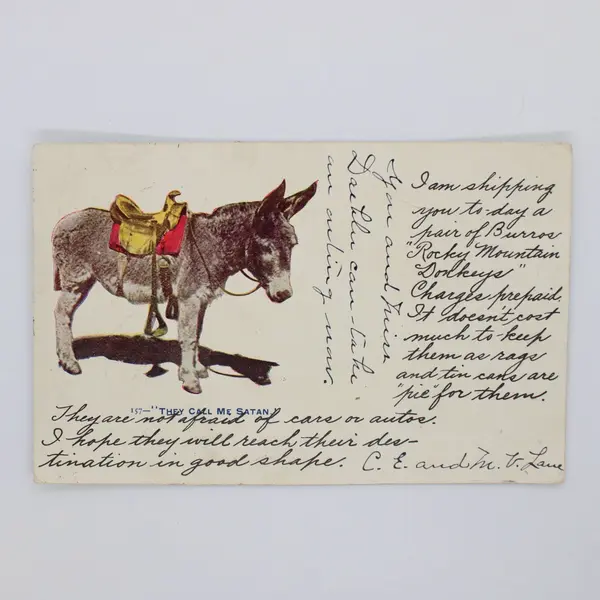 I am shipping
you to-day a
pair of Burros
"Rocky Mountain
Donkeys"
Charges prepaid.
It doesnt cost
much to keep
them as rags
and tin cans are
"pie" for them.
157—"THEY CALL ME SATAN"
They are not afraid of cars or autos.
I hope they will reach their des-
tination in good shape. C. E. and M. V. Lane
You and Miss
can take
an outing now.